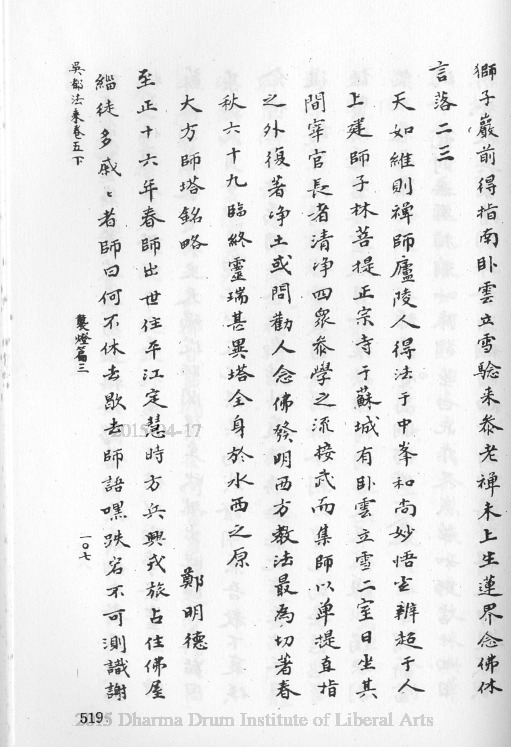 獅子巖前得指南卧雲立雪驗来叅老禪未上生蓮界念佛休
言落二三
天如維則禪師廬陵人得法于中峯和尚妙悟宏辨超于人
上建師子林菩提正宗寺于蘇城有卧雲立雪二室日坐其
間宰官長者清净四衆叅學之流接武而集師以单提直指
之外復著净土或問勸人念佛發明西方教法最為切著春
秋六十九臨終靈瑞甚異塔全身於水西之原
大方師塔銘略 鄭明德
至正十六年春師出世住平江定慧時方兵興戎旅占住佛屋
緇徒多戚〻者師曰何不休去歇去師語嘿跌宕不可測識謝
吳都法乗卷五下 襲燈篇三 一〇七
2015-04-17
519
2015 Dharma Drum Institute of Liberal Arts